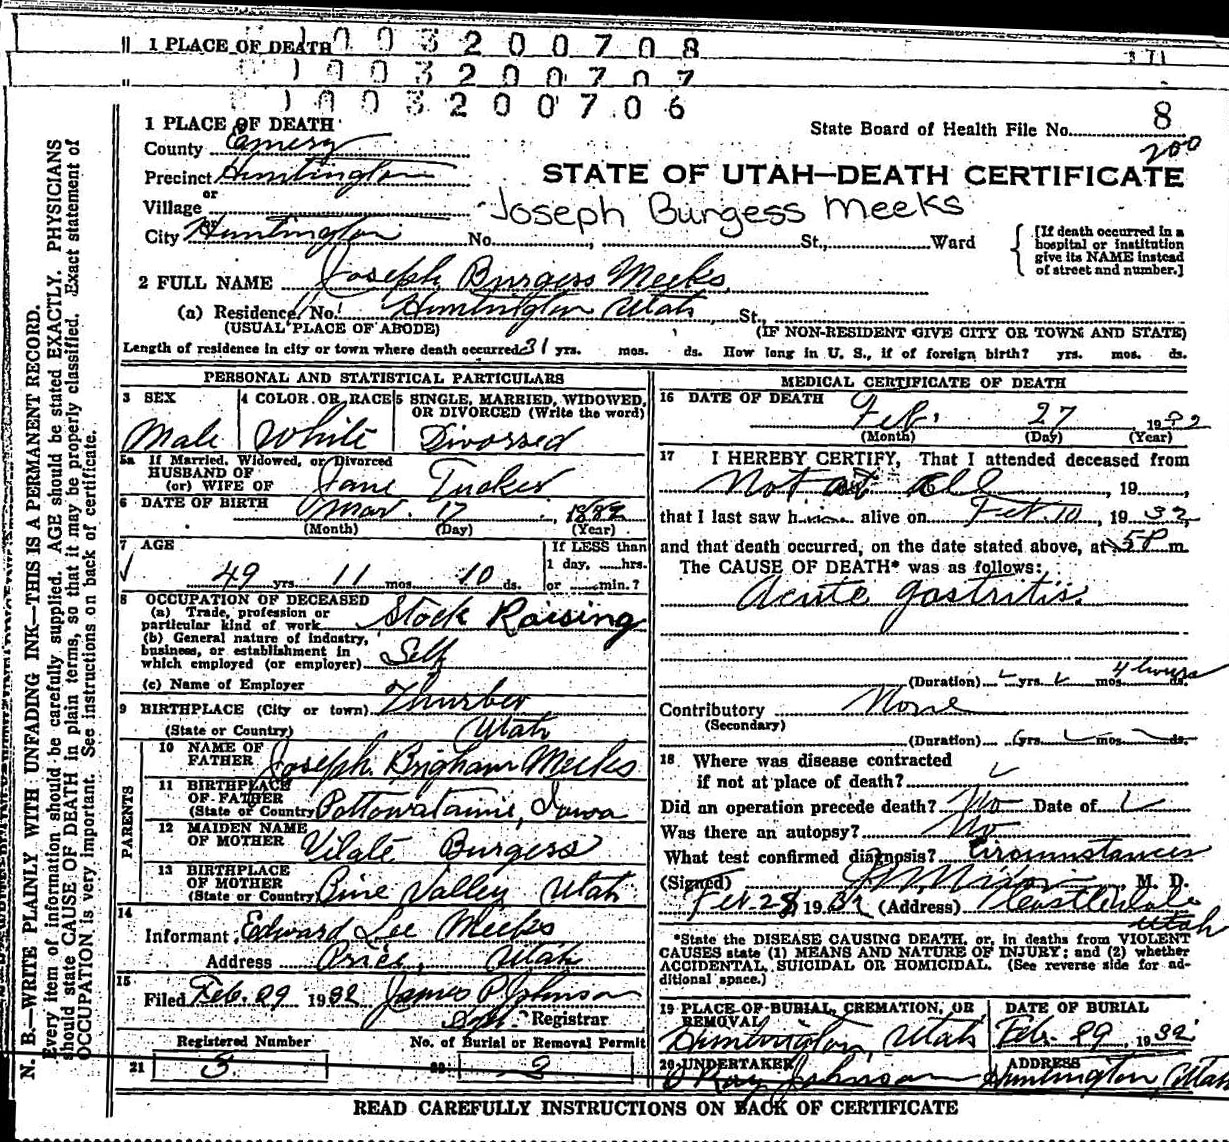 1 PLACE OF DEATH 1003200708
1003200707
1003200706
1 PLACE OF DEATH
State Board of Health File No. 8
200
County Emery
Precinct Huntington
or
Village
STATE OF UTAH—DEATH CERTIFICATE
Joseph Burgess Meeks
or
City Huntington No. , St., Ward
[If death occurred in a
hospital or institution
give its NAME instead
of street and number.]
2 FULL NAME Joseph Burgess Meeks
(a) Residence, No. Huntington Utah, St.,
(USUAL PLACE OF ABODE) (IF NON-RESIDENT GIVE CITY OR TOWN AND STATE)
Length of residence in city or town where death occurred 31 yrs. mos. ds. How long in U. S., if of foreign birth? yrs. mos. ds.
PERSONAL AND STATISTICAL PARTICULARS
3 SEX 4 COLOR OR RACE 5 SINGLE, MARRIED, WIDOWED,
OR DIVORCED (Write the word)
Male White Divorsed
5a If Married, Widowed, or Divorced
HUSBAND OF
(or) WIFE OF Jane Tucker
6 DATE OF BIRTH Mar. 17, 1882
(Month) (Day) (Year)
7 AGE If LESS than
1 day, hrs.
49 yrs. 11 mos. 10 ds. or min.?
8 OCCUPATION OF DECEASED
(a) Trade, profession or
particular kind of work Stock Raising
(b) General nature of industry,
business, or establishment in
which employed (or employer) Self
(c) Name of Employer
9 BIRTHPLACE (City or town) Thurber
(State or Country) Utah
PARENTS
10 NAME OF
FATHER Joseph Brgham Meeks
11 BIRTHPLACE
OF FATHER
(State or Country) Pottowatamie, Iowa
12 MAIDEN NAME
OF MOTHER Vilate Burgess
13 BIRTHPLACE
OF MOTHER
(State or Country) Pine Valley Utah
14
Informant Edward Lee Meeks
Address Price, Utah
15
Filed Feb. 29 1932 James P Johnson
Registrar
Registered Number No. of Burial or Removal Permit
21 3 22 2
MEDICAL CERTIFICATE OF DEATH
16 DATE OF DEATH
Feb. 27 1932
(Month) (Day) (Year)
17 I HEREBY CERTIFY, That I attended deceased from
Not at all, 19 ,
that I last saw him alive on Feb. 10, 1932,
and that death occurred, on the date stated above, at 5 P m.
The CAUSE OF DEATH* was as follows:
Acute gastritis
4 hours
(Duration) yrs. mos. ds.
Contributory None
(Secondary)
(Duration) yrs. mos. ds.
18 Where was disease contracted
if not at place of death?
Did an operation precede death? No Date of
Was there an autopsy? No
What test confirmed diagnosis? Circumstances
(Signed) Nixon, M. D.
Feb. 28, 1932 (Address) Castledale
Utah
*State the DISEASE CAUSING DEATH, or, in deaths from VIOLENT
CAUSES state (1) MEANS AND NATURE OF INJURY; and (2) whether
ACCIDENTAL, SUICIDAL OR HOMICIDAL. (See reverse side for ad-
ditional space.)
19 PLACE OF BURIAL, CREMATION, OR
REMOVAL
Huntington, Utah
DATE OF BURIAL
Feb. 29, 1932
20 UNDERTAKER
Ray Johnson
ADDRESS
Huntington Utah
READ CAREFULLY INSTRUCTIONS ON BACK OF CERTIFICATE
N. B.—WRITE PLAINLY WITH UNFADING INK—THIS IS A PERMANENT RECORD.
Every item of information should be carefully supplied. AGE should be stated EXACTLY. PHYSICIANS
should state CAUSE OF DEATH in plain terms, so that it may be properly classified. Exact statement of
OCCUPATION is very important. See instructions on back of certificate.